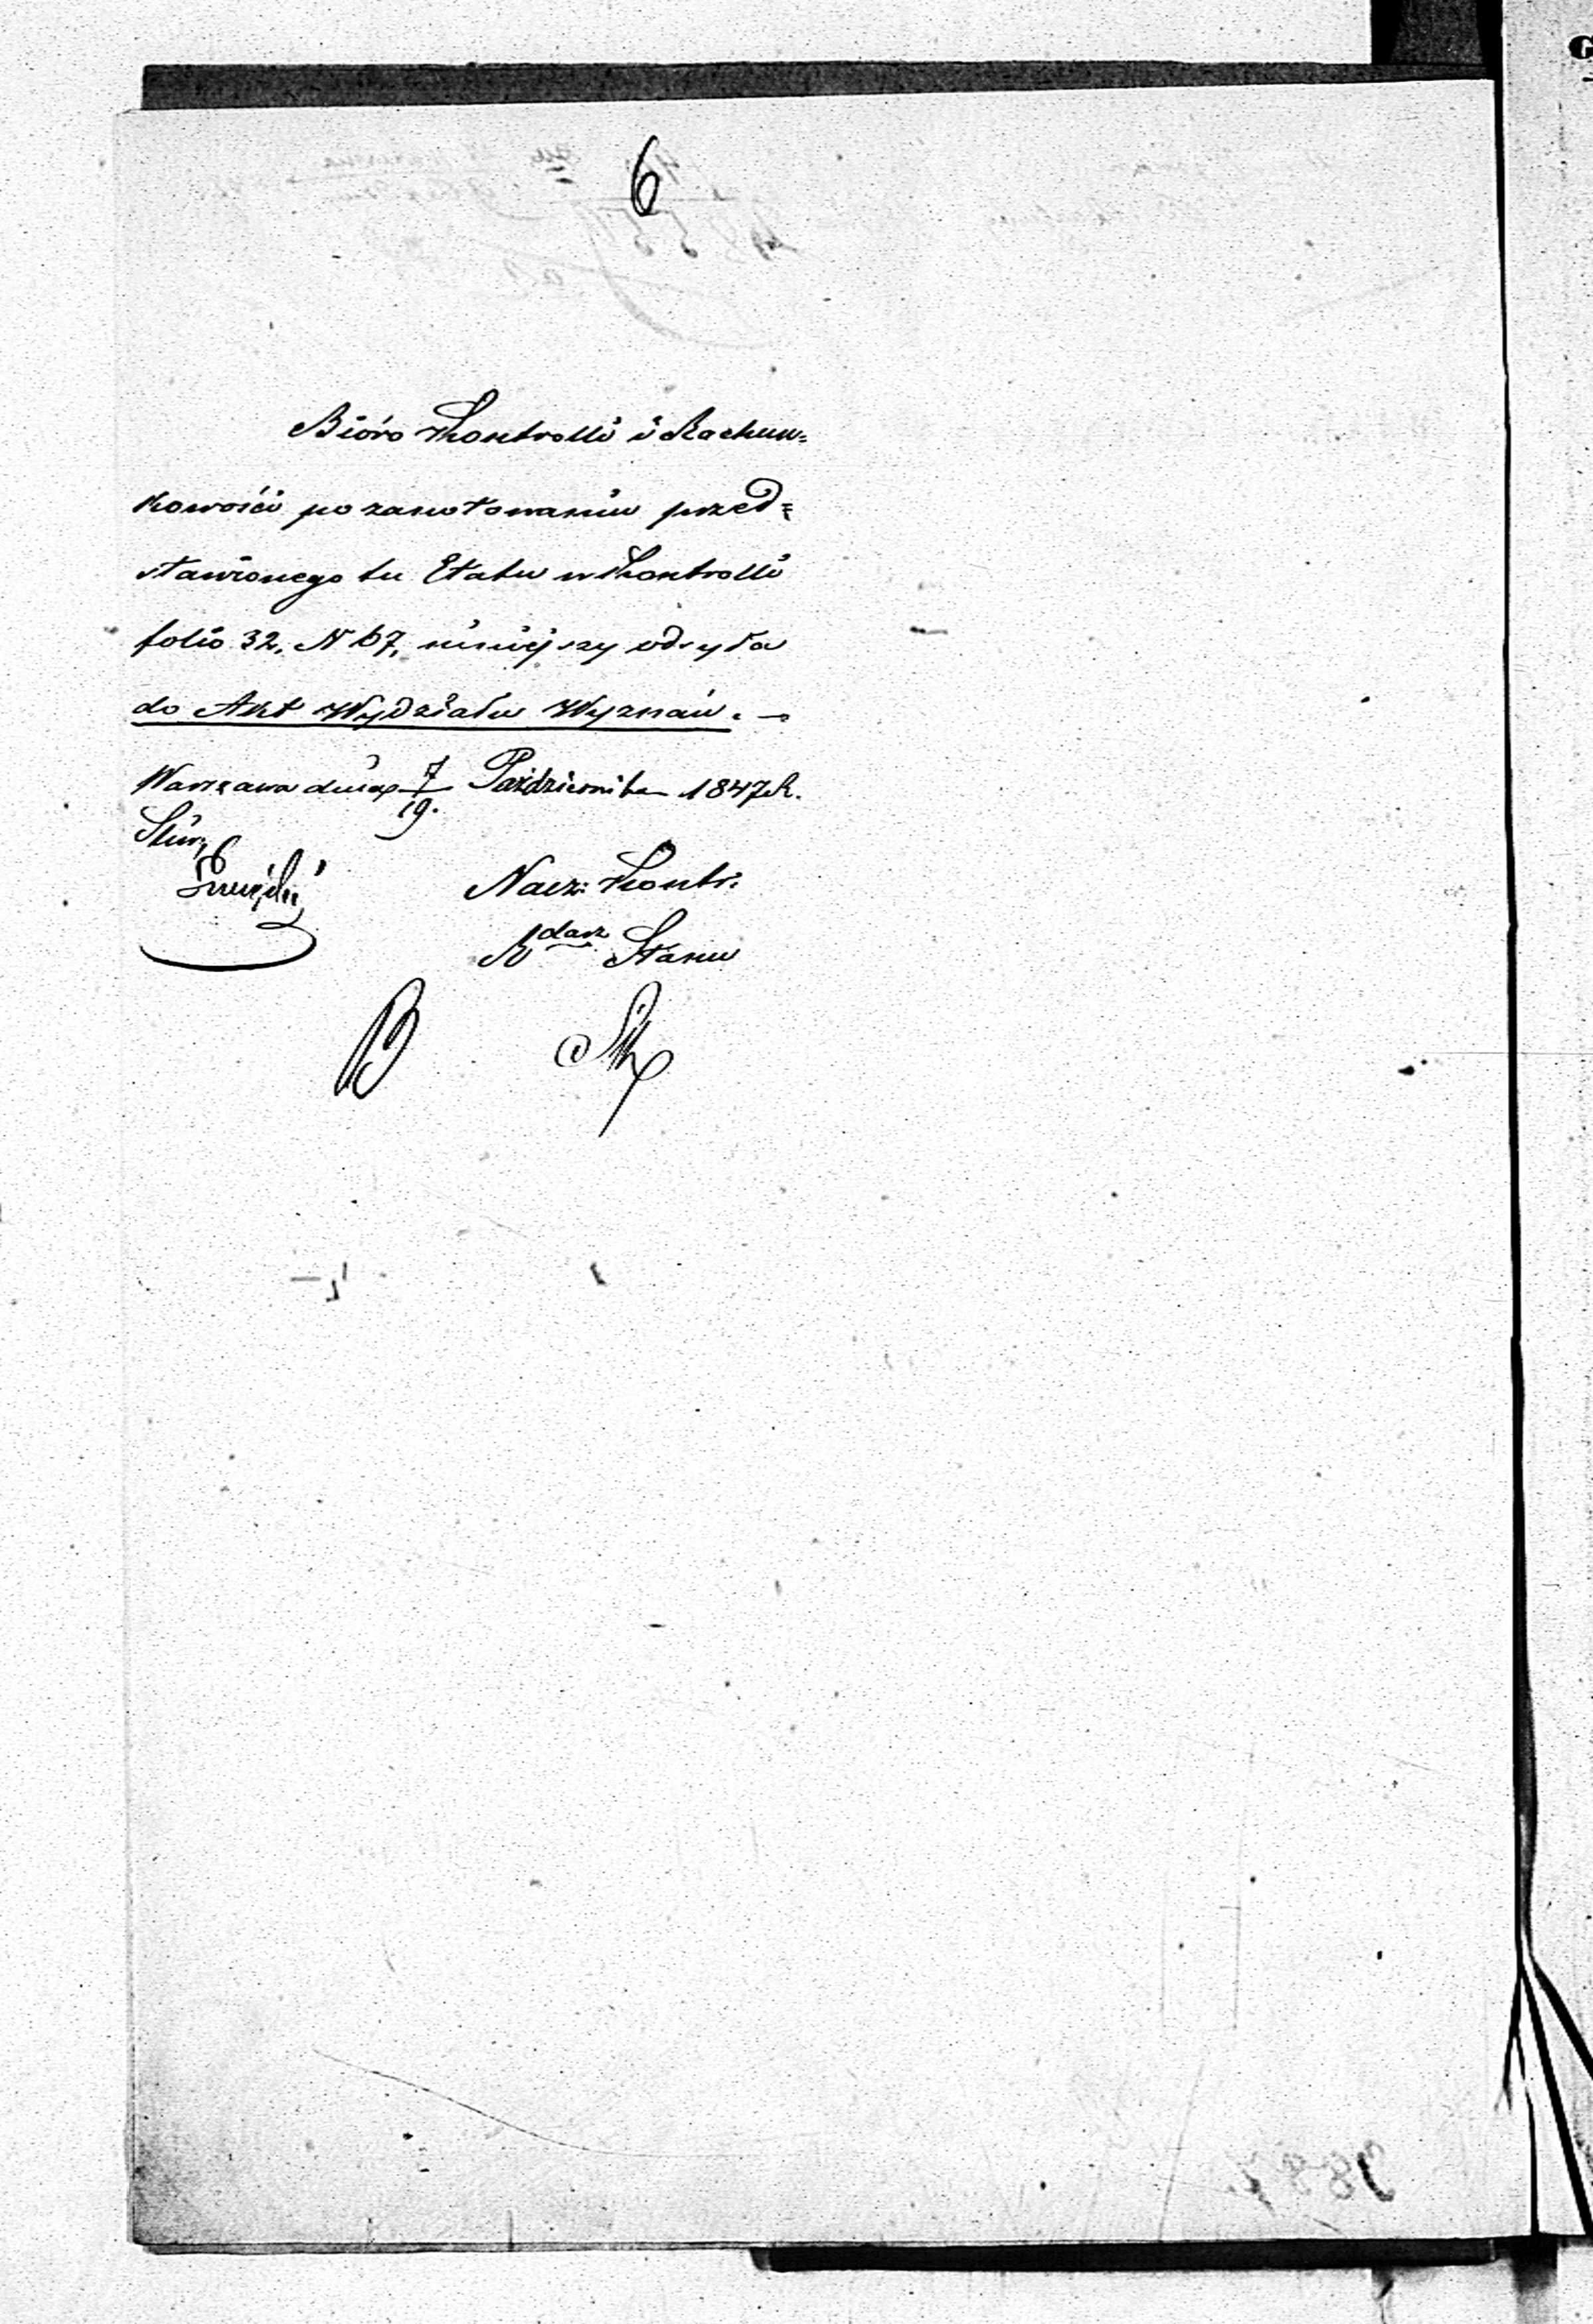 6
Bióro Kontrolli i Rachun=
kowości po zanotowaniu przed=
stawionego tu Etatu w Kontrolli
folio 32, N 67, niniejszy odsyła
do Akt Wydziału Wyznań. —
Warszawa dnia 7/19. Października 1847 R.
Nacz: Kontr:
Rdarz Stanu